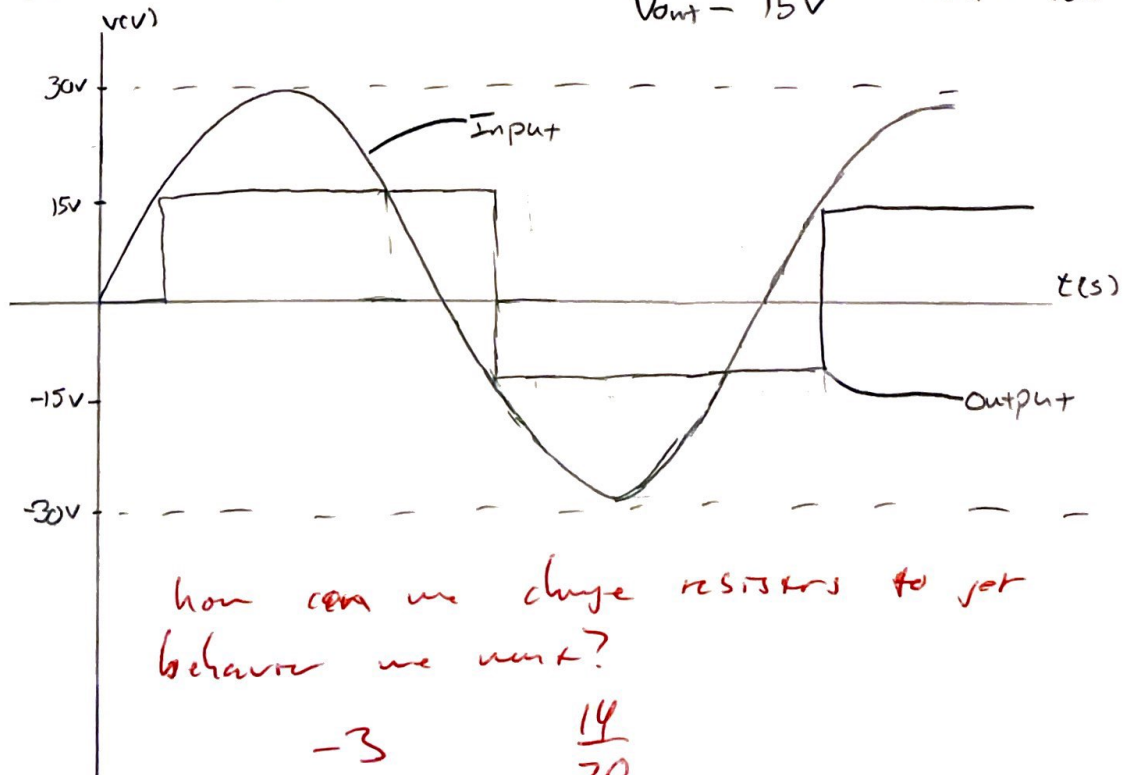 Vout = 15V
V(V)
30V
Input
15V
t(s)
-15V
Output
-30V
how can we change resistors to get
behavior we want?
-3
14
20